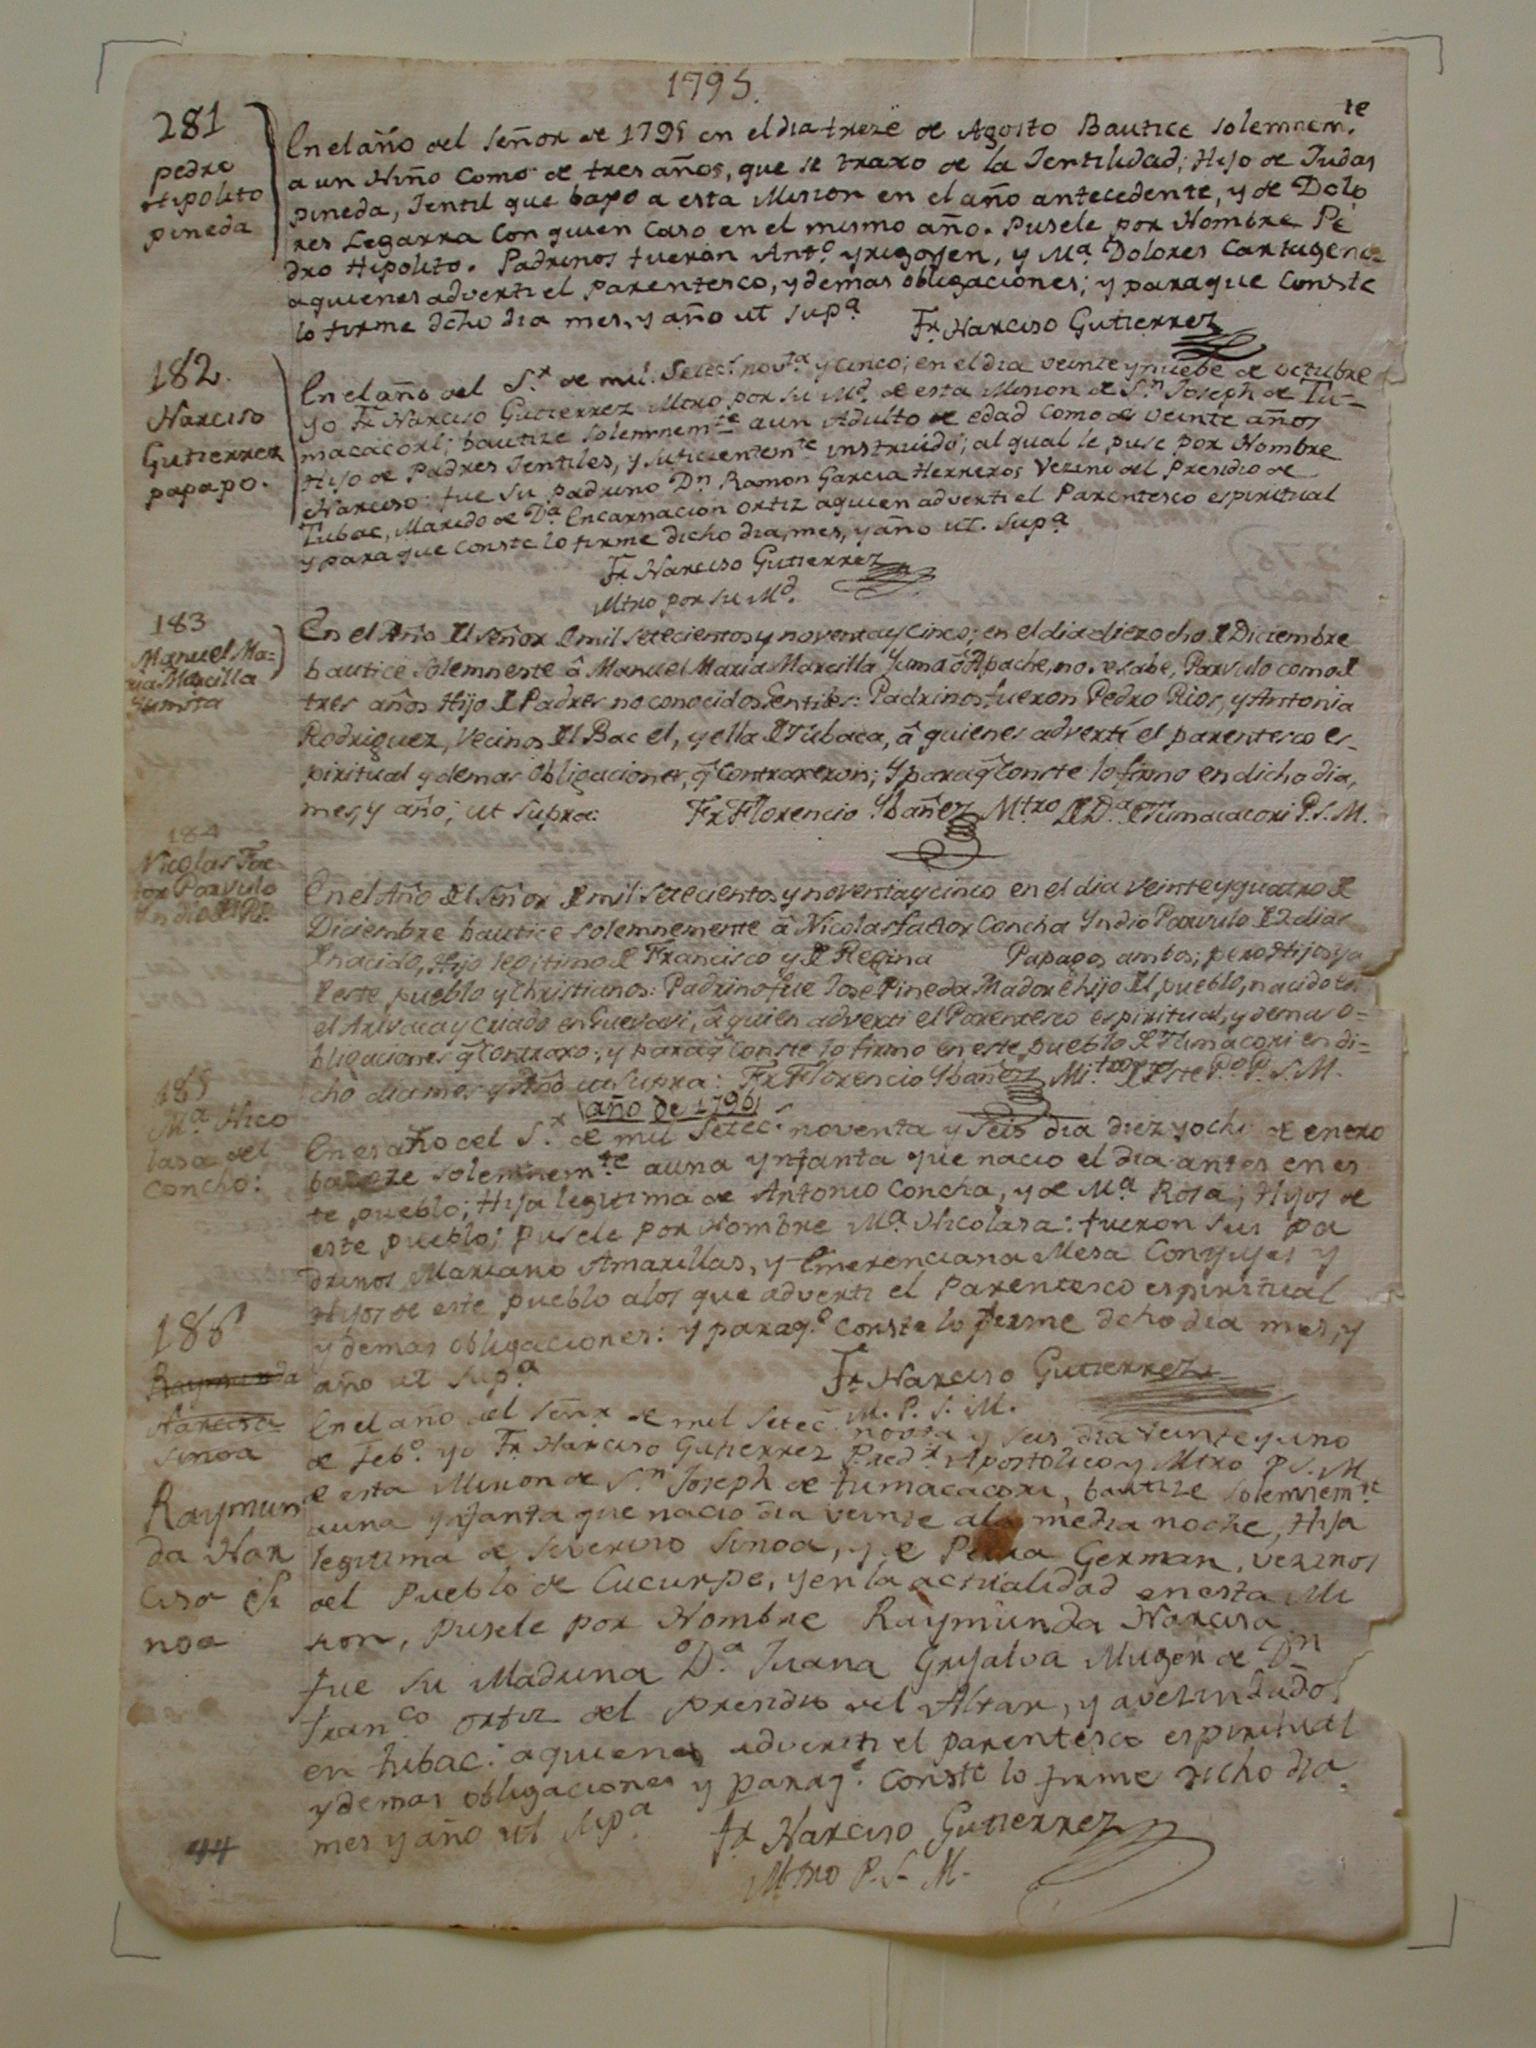 1795.
281
pedro
Hipolito
pineda
En el año del Señor de 1795 en el dia treze de Agosto Bautice solemnem.te
a un Niño como de tres años, que se traxo de la Jentilidad; Hijo de Judas
pineda, Jentil que baxo a esta Mision en el año antecedente, y de Dolo
res Legarra con quien caso en el mismo año. Pusele por Nombre Pe
dro Hipolito. Padrinos fueron Ant.o yrigoyen, y M.a Dolores Cartagena
a quienes adverti el parentesco, y demas obligaciones; y para que conste
lo firme dcho dia mes, y año ut sup.a
Fr. Narciso Gutierrez
182.
Narciso
Gutierrez
papapo.
En el año del S.r de mil. Setec.s nov.ta y cinco; en el dia veinte y nuebe de octubre
yo Fr Narciso Gutierrez Mtro por su M.d de esta Mision de S.n Joseph de Tu-
macacori; bautize solemnem.te a un Adulto de edad como de veinte años
Hijo de Padres Jentiles, y suficientem.te instruido; al qual le puse por Nombre
Narciso: fue su padrino Dn Ramon Garcia Herreros Vezino del Presidio de
Tubac, Marido de D.a Encarnacion Ortiz a quien adverti el Parentesco espiritual
y para que conste lo firme dicho dia, mes, y año ut. sup.a
Fr Narciso Gutierrez
Mtro por su M.d
183
Manuel Ma=
ria Marcilla
Yumita
En el Año del Señor de mil setecientos y noventa y cinco; en el dia diezocho de Diciembre
bautice solemnente â Manuel Maria Marcilla Yuma ô Apache, no se sabe, Parvulo como de
tres años Hijo de Padres no conocidos Gentiles: Padrinos fueron Pedro Rios, y Antonia
Rodriguez, Vecinos del Bac el, y ella de Tubaca, â quienes advertí el parentesco es-
piritual y demas obligaciones, q̃ contraxeron; Y para q̃ conste lo firmo en dicho dia,
mes, y año; ut supra:
Fr. Florencio Ybañez Mtro de Da. de Tumacacori P. S. M.
184
Nicolas Fac-
tor Parvulo
Yndio del P.o
En el Año del Señor de mil setecientos y noventa y cinco en el dia veinte y quatro de
Diciembre bautice solemnemente â Nicolas factor Concha Yndio Parvulo de 2 dias
de nacido, Hijo legitimo de Francisco y de Regina Papagos ambos; pero Hijos ya
de este pueblo y Christianos: Padrino fue Jose Pineda Mador è hijo del pueblo, nacido en
el Arivaca y criado en Guevavi, â quien adverti el Parentesco espiritual, y demas o=
bligaciones q̃ contraxo; y para q̃ conste lo firmo en este pueblo de Tumacori en di=
cho dia mes y Año ut supra: Fr Florencio Ybañez Mi.tro de Este P.o P. S. M.
año de 1796
185
M.a Nico
lasa del
concho:
En es año del S.r de mil setec.s noventa y seis dia diez y ocho de enero
bautize solemnem.te a una ynfanta que nacio el dia antes en es
te pueblo; Hija legitima de Antonio Concha, y de M.a Rosa; Hijos de
este pueblo; pusele por Nombre M.a Nicolasa: fueron sus pa
drinos Mariano Amarillas, y Emerenciana Mesa Conyujes y
Hijos de este pueblo a los que adverti el Parentesco espiritual
y demas obligaciones: y para q.e conste lo firme dcho dia mes, y
año ut sup.a
Fr Narciso Gutierrez
M. P. S. M.
186
Raymunda
Narcisa
sinoa
Raymun
da Nar
cisa Si
noa
En el año del señr de mil setec.s nov.ta y seis dia veinte y uno
de Feb.o yo Fr Narciso Gutierrez Pred.r Apostolico y Mtro P. S. M
de esta Mision de S.n Joseph de tumacacori, bautize solemnem.te
a una ynfanta que nacio dia veinte a la media noche, Hija
legitima de Severino Sinoa, y de Petra German, vezinos
del Pueblo de Cucurpe, y en la actualidad en esta Mi
sion, pusele por Nombre Raymunda Narcisa
fue su Madrina D.a Juana Grijalva Muger de Dn
Fran.co ortiz del presidio del Altar, y avezindados
en tubac: a quienes adverti el parentesco espiritual
y demas obligaciones y para q.e conste lo firme dicho dia
mes y año ut sup.a
fr Narciso Gutierrez
Mtro P. S. M.
44